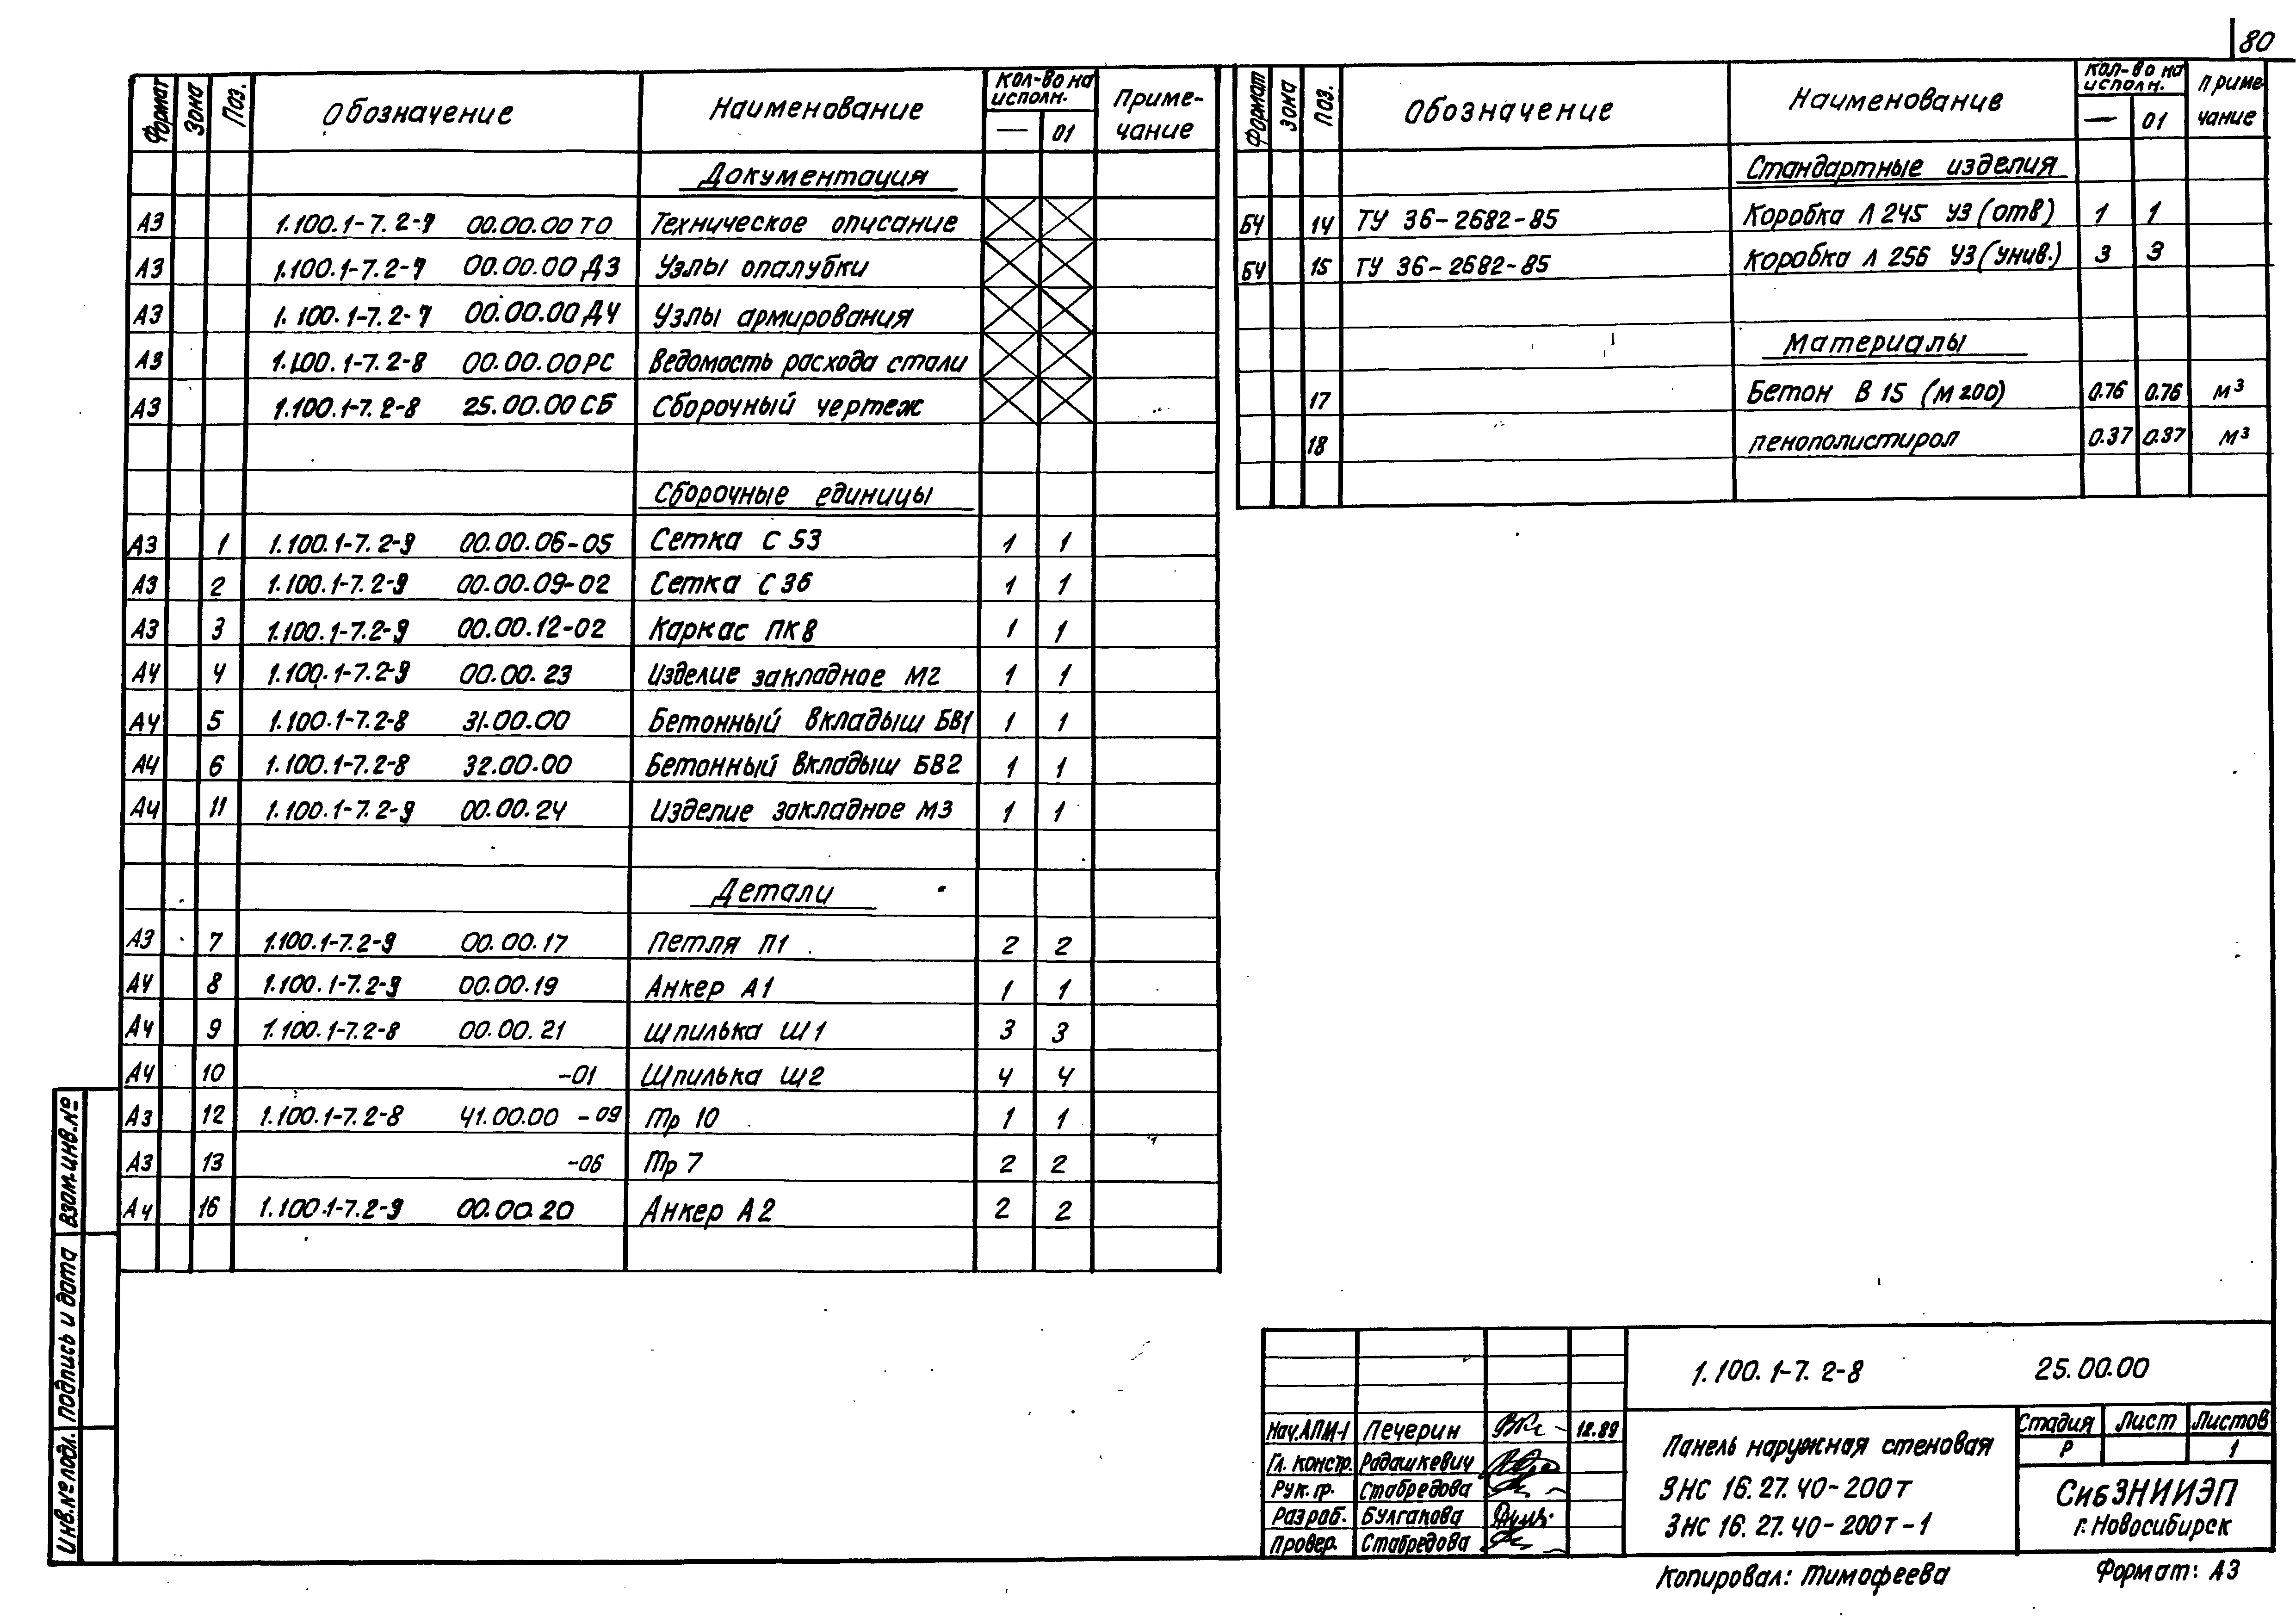 80
Формат Зона Поз. Обозначение Наименование Кол-во на исполн. — 01 Примечание
Документация
А3 1.100.1-7.2-7 00.00.00 ТО Техническое описание
А3 1.100.1-7.2-7 00.00.00 Д3 Узлы опалубки
А3 1.100.1-7.2-7 00.00.00 Д4 Узлы армирования
А3 1.100.1-7.2-8 00.00.00 РС Ведомость расхода стали
А3 1.100.1-7.2-8 25.00.00 СБ Сборочный чертеж
Сборочные единицы
А3 1 1.100.1-7.2-9 00.00.06-05 Сетка С 53 1 1
А3 2 1.100.1-7.2-9 00.00.09-02 Сетка С 36 1 1
А3 3 1.100.1-7.2-9 00.00.12-02 Каркас ПК8 1 1
А4 4 1.100.1-7.2-9 00.00.23 Изделие закладное М2 1 1
А4 5 1.100.1-7.2-8 31.00.00 Бетонный вкладыш БВ1 1 1
А4 6 1.100.1-7.2-8 32.00.00 Бетонный вкладыш БВ2 1 1
А4 11 1.100.1-7.2-9 00.00.24 Изделие закладное М3 1 1
Детали
А3 7 1.100.1-7.2-9 00.00.17 Петля П1 2 2
А4 8 1.100.1-7.2-9 00.00.19 Анкер А1 1 1
А4 9 1.100.1-7.2-8 00.00.21 Шпилька Ш1 3 3
А4 10 -01 Шпилька Ш2 4 4
А3 12 1.100.1-7.2-8 41.00.00 -09 Тр 10 1 1
А3 13 -06 Тр 7 2 2
А4 16 1.100.1-7.2-9 00.00.20 Анкер А2 2 2
Формат Зона Поз. Обозначение Наименование Кол-во на исполн. — 01 Примечание
Стандартные изделия
БЧ 14 ТУ 36-2682-85 Коробка Л 245 У3 (отв) 1 1
БЧ 15 ТУ 36-2682-85 Коробка Л 256 У3 (унив.) 3 3
Материалы
17 Бетон В 15 (М 200) 0.76 0.76 м³
18 пенополистирол 0.37 0.37 м³
Взам.инв.№
Подпись и дата
Инв.№ подл.
1.100.1-7.2-8 25.00.00
Нач.АПМ-1 Печерин 12.89
Гл. констр. Радашкевич
Рук. гр. Стабредова
Разраб. Булгакова
Провер. Стабредова
Панель наружная стеновая
3НС 16.27.40-200т
3НС 16.27.40-200т-1
Стадия Лист Листов
Р 1
СибЗНИИЭП
г. Новосибирск
Копировал: Тимофеева Формат: А3